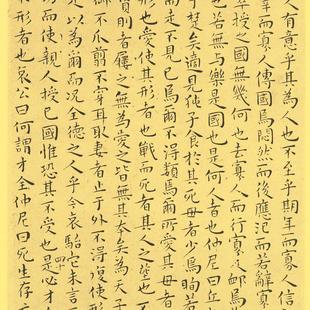 人有意乎其為人也不至乎期年而寡人信
宰而寡人傳國焉悶然而後應氾而若辭寡
卒授之國無幾何也去寡人而行寡人卹焉
也若無與樂是國也是何人者也仲尼曰丘
使于楚矣適見㹠子食於其死母者少焉眴若
而走不見已焉爾不得類焉爾所愛其母者
形也愛使其形者也戰而死者其人之塟也
資刖者之屨無為愛之皆無其本矣為天子
不爪翦不穿耳取妻者止于外不得復使形
足以為爾而況全德之人乎今哀駘它未言
而使親人授已國惟恐其不受也是必才
形者也哀公曰何謂才全仲尼曰死生存